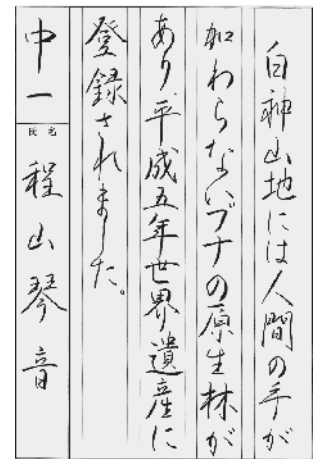 白神山地には人間の手が
加わらないブナの原生林が
あり、平成五年世界遺産に
登録されました。
中一
氏名
程山琴音